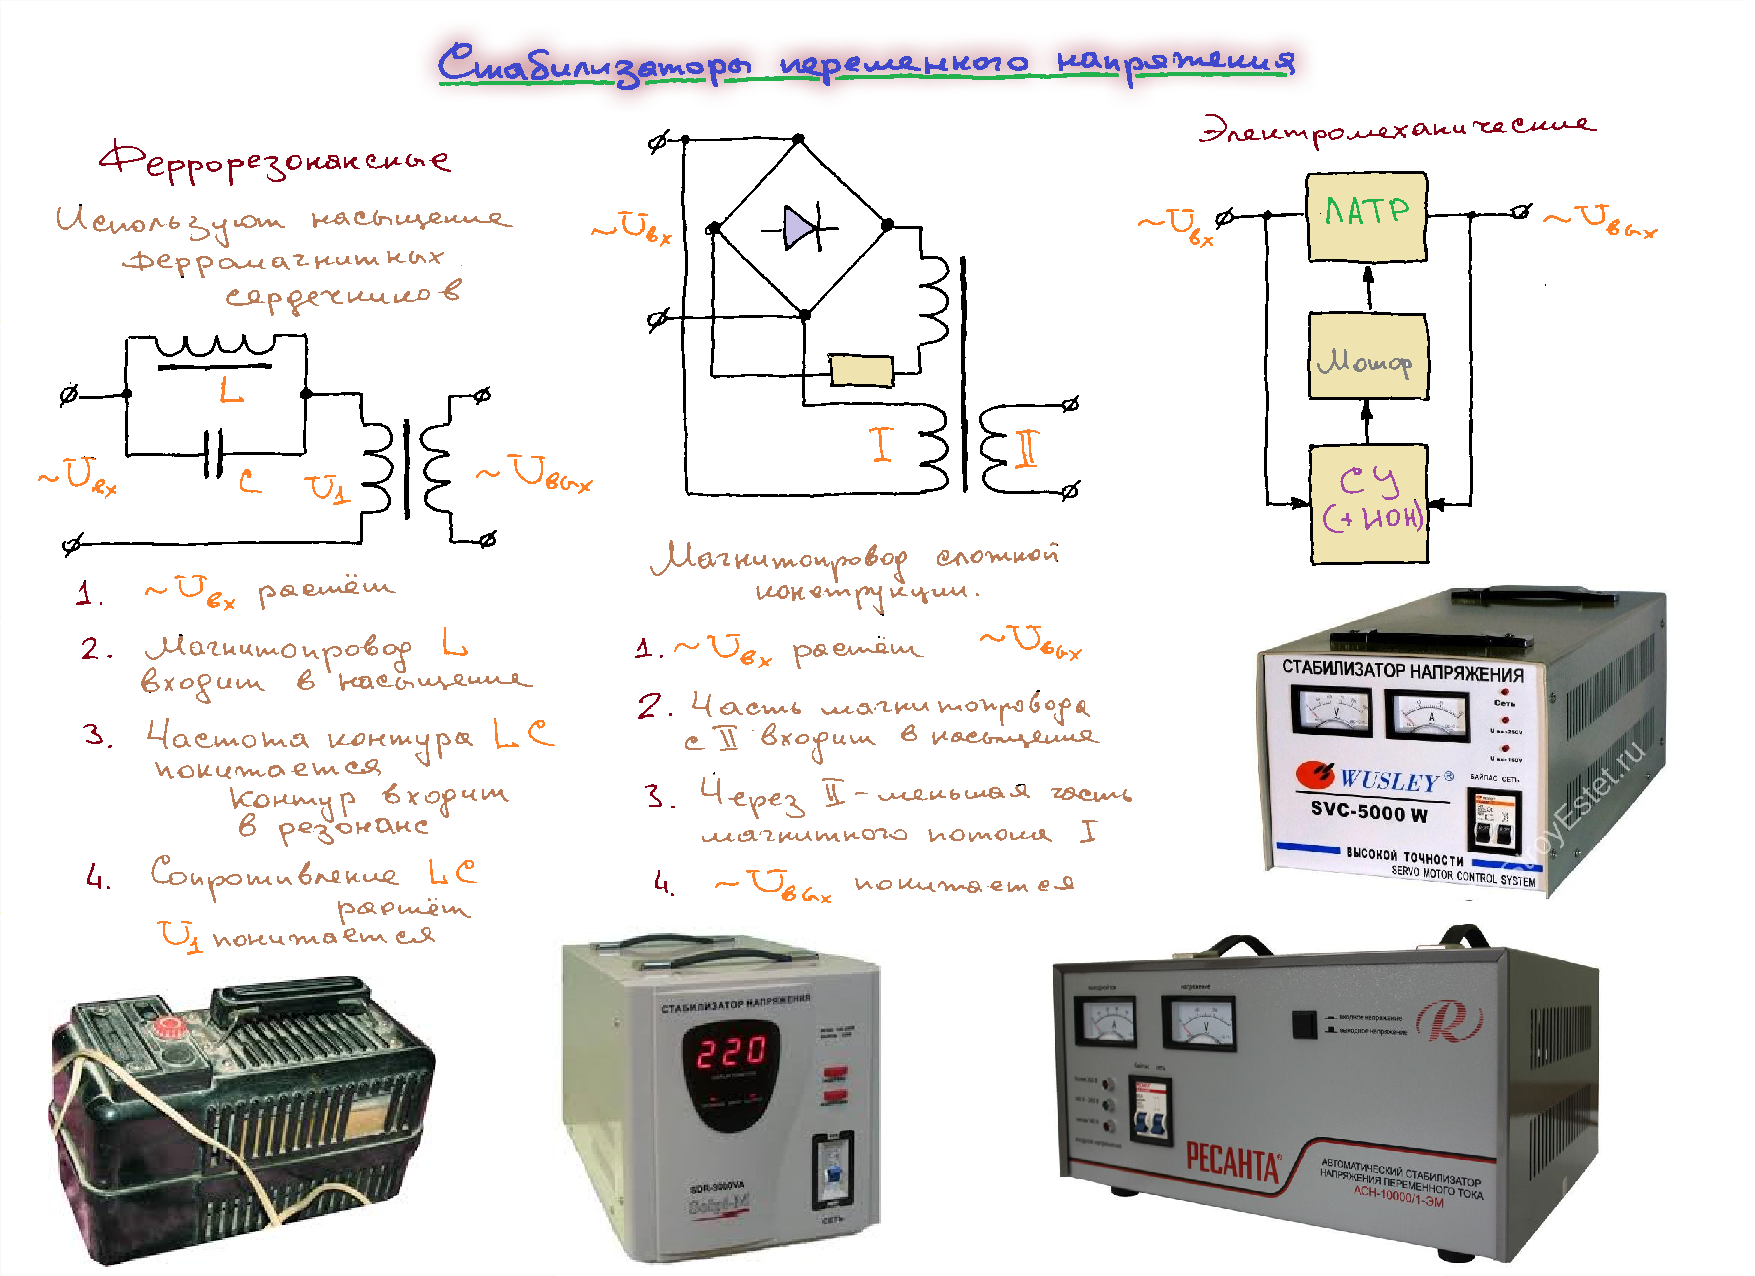 Стабилизаторы переменного напряжения
Феррорезонансные
Используют насыщение
ферромагнитных
сердечников
L
C
~Uвх
U1
~Uвых
1. ~Uвх растёт
2. Магнитопровод L
входит в насыщение
3. Частота контура LC
понижается
контур входит
в резонанс
4. Сопротивление LC
растёт
U1 понижается
~Uвх
I
II
Магнитопровод сложной
конструкции.
1. ~Uвх растёт ~Uвых
2. Часть магнитопровода
с II входит в насыщение
3. Через II - меньшая часть
магнитного потока I
4. ~Uвых понижается
Электромеханические
~Uвх
ЛАТР
~Uвых
Мотор
СУ
(+ИОН)
СТАБИЛИЗАТОР НАПРЯЖЕНИЯ
V
A
Сеть
БАЙПАС СЕТЬ
WUSLEY®
SVC-5000 W
ВЫСОКОЙ ТОЧНОСТИ
SERVO MOTOR CONTROL SYSTEM
StroyEstet.ru
СТАБИЛИЗАТОР НАПРЯЖЕНИЯ
220
SDR-3000VA
СЕТЬ
A
V
напряжение
входное напряжение
выходное напряжение
R
РЕСАНТА®
АВТОМАТИЧЕСКИЙ СТАБИЛИЗАТОР
НАПРЯЖЕНИЯ ПЕРЕМЕННОГО ТОКА
АСН-10000/1-ЭМ